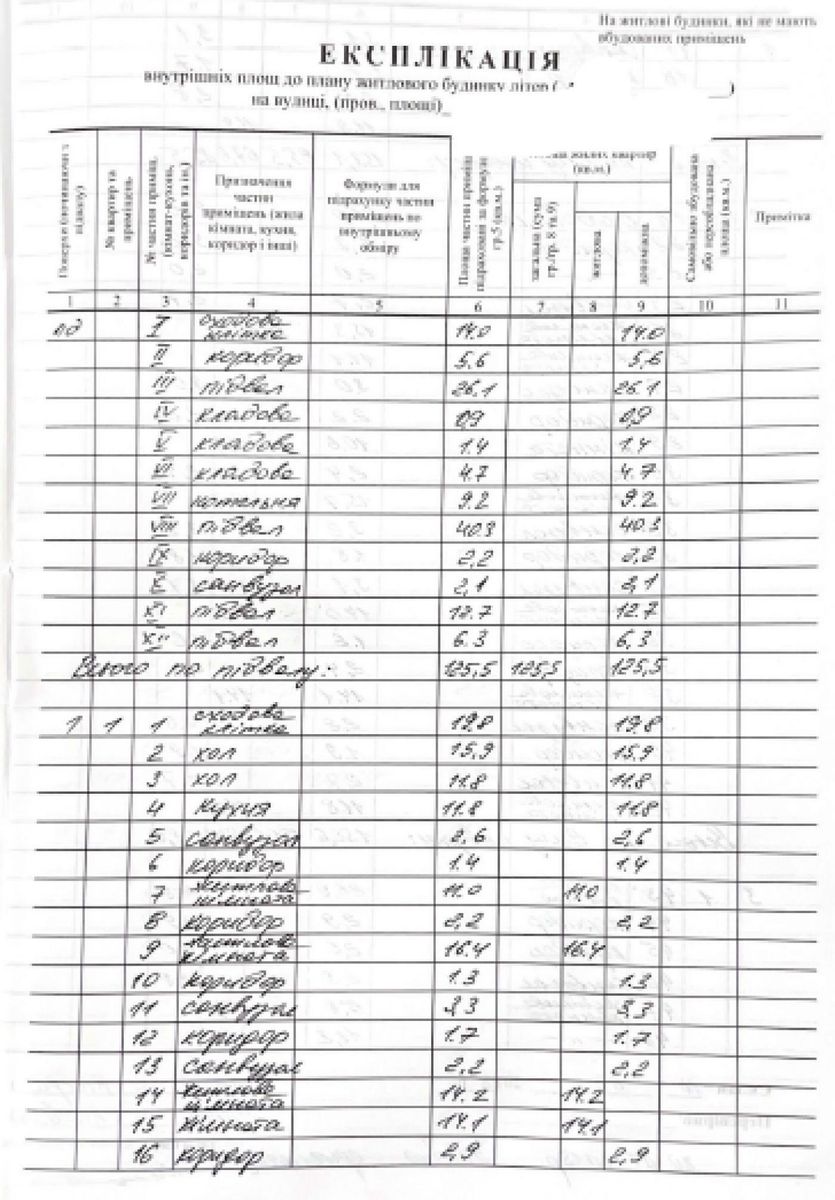 На житлові будинки, які не мають
вбудованих приміщень
ЕКСПЛІКАЦІЯ
внутрішніх площ до плану житлового будинку літер (
на вулиці, (пров., площі)_ __)
Поверхи (починаючи з підвалу) | № квартир та приміщень | № частин приміщ. (кімнат-кухонь, коридорів та ін.) | Призначення частин приміщень (жила кімната, кухня, коридор і інші) | Формули для підрахунку частин приміщень по внутрішньому обміру | Площа частин приміщ. підрахована за формулою гр.5 (кв.м.) | жилих квартир (кв.м.) | загальна (сума гр./гр. 8 та 9) | житлова | допоміжна | Самовільно збудована або переобладнана площа (кв.м.) | Примітка
1 2 3 4 5 6 7 8 9 10 11
під I сходова клітка 14.0 14.0
II коридор 5,6 5,6
III підвал 26.1 26.1
IV кладова 0,9 0,9
V кладова 1.4 1.4
VI кладова 4.7 4.7
VII котельня 9.2 9.2
VIII підвал 40.3 40.3
IX коридор 2,2 2,2
X санвузол 2,1 2,1
XI підвал 12.7 12.7
XII підвал 6.3 6,3
Всього по підвалу: 125,5 125,5 125,5
1 1 1 сходова клітка 19.8 19.8
2 хол 15,9 15,9
3 хол 11.8 11.8
4 кухня 11.8 11.8
5 санвузол 2,6 2,6
6 коридор 1.4 1.4
7 житлова кімната 11.0 11.0
8 коридор 2,2 2,2
9 житлова кімната 16.4 16.4
10 коридор 1.3 1.3
11 санвузол 3,3 3,3
12 коридор 1.7 1.7
13 санвузол 2,2 2,2
14 житлова кімната 14.2 14.2
15 кімната 14.1 14.1
16 коридор 2,9 2,9